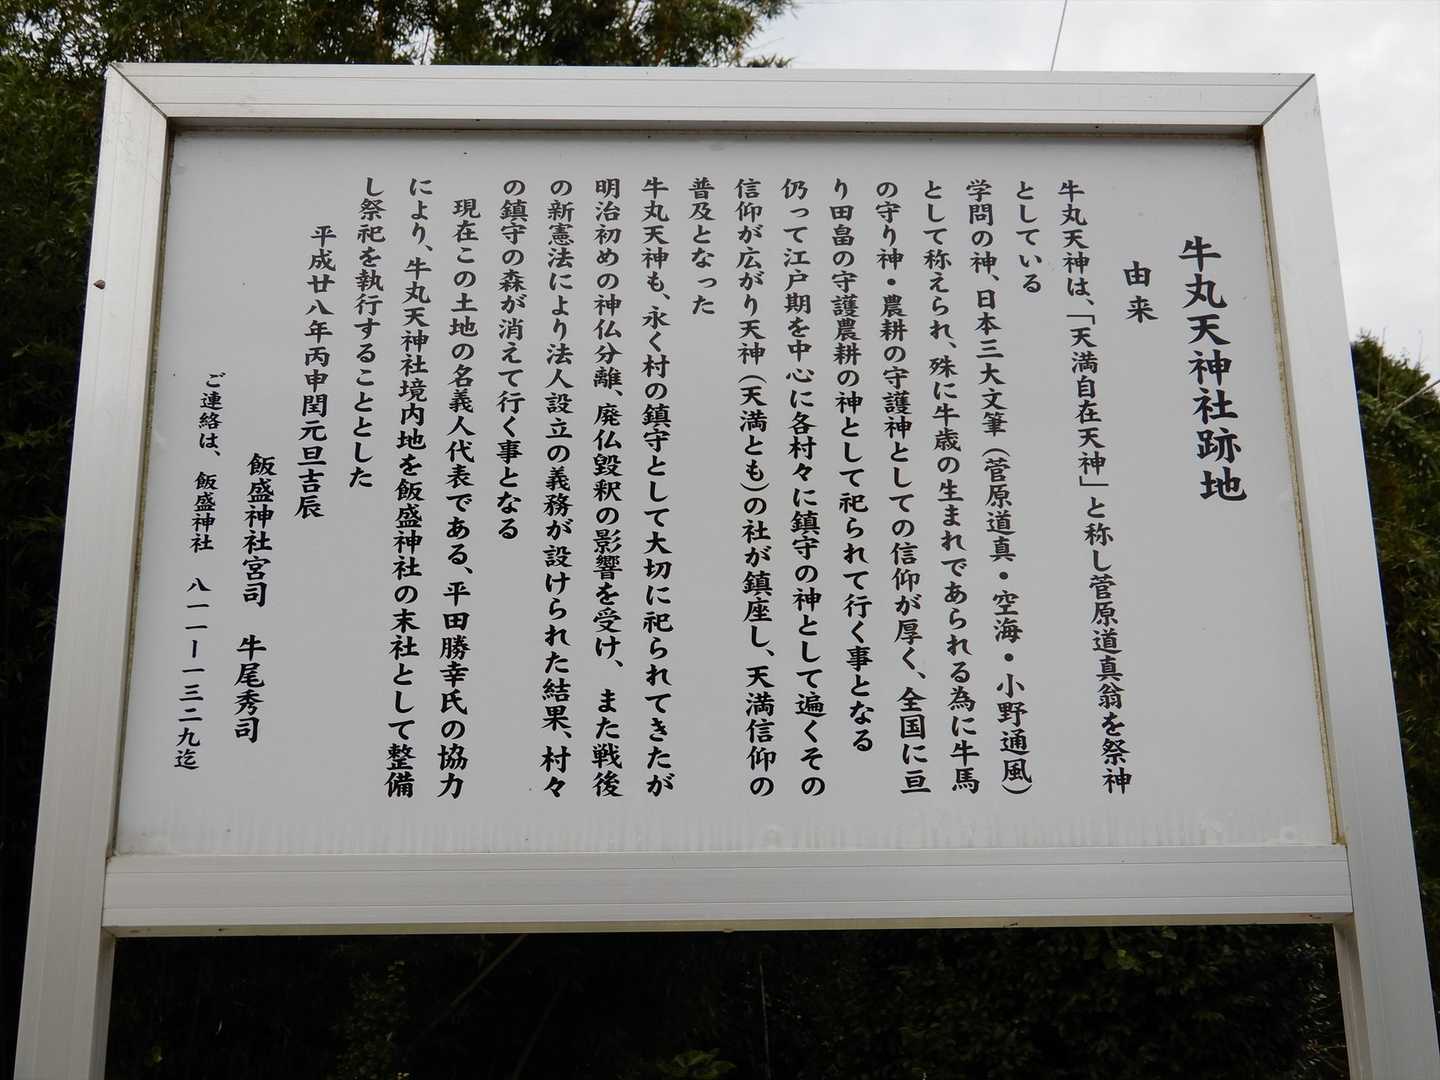 牛丸天神社跡地
由来
牛丸天神は、「天満自在天神」と称し菅原道真翁を祭神
としている
学問の神、日本三大文筆(菅原道真・空海・小野通風)
として称えられ、殊に牛歳の生まれであられる為に牛馬
の守り神・農耕の守護神としての信仰が厚く、全国に亘
り田畠の守護農耕の神として祀られて行く事となる
仍って江戸期を中心に各村々に鎮守の神として遍くその
信仰が広がり天神(天満とも)の社が鎮座し、天満信仰の
普及となった
牛丸天神も、永く村の鎮守として大切に祀られてきたが
明治初めの神仏分離、廃仏毀釈の影響を受け、また戦後
の新憲法により法人設立の義務が設けられた結果、村々
の鎮守の森が消えて行く事となる
現在この土地の名義人代表である、平田勝幸氏の協力
により、牛丸天神社境内地を飯盛神社の末社として整備
し祭祀を執行することとした
平成廿八年丙申閏元旦吉辰
飯盛神社宮司 牛尾秀司
ご連絡は、飯盛神社 八一一ー一三二九迄